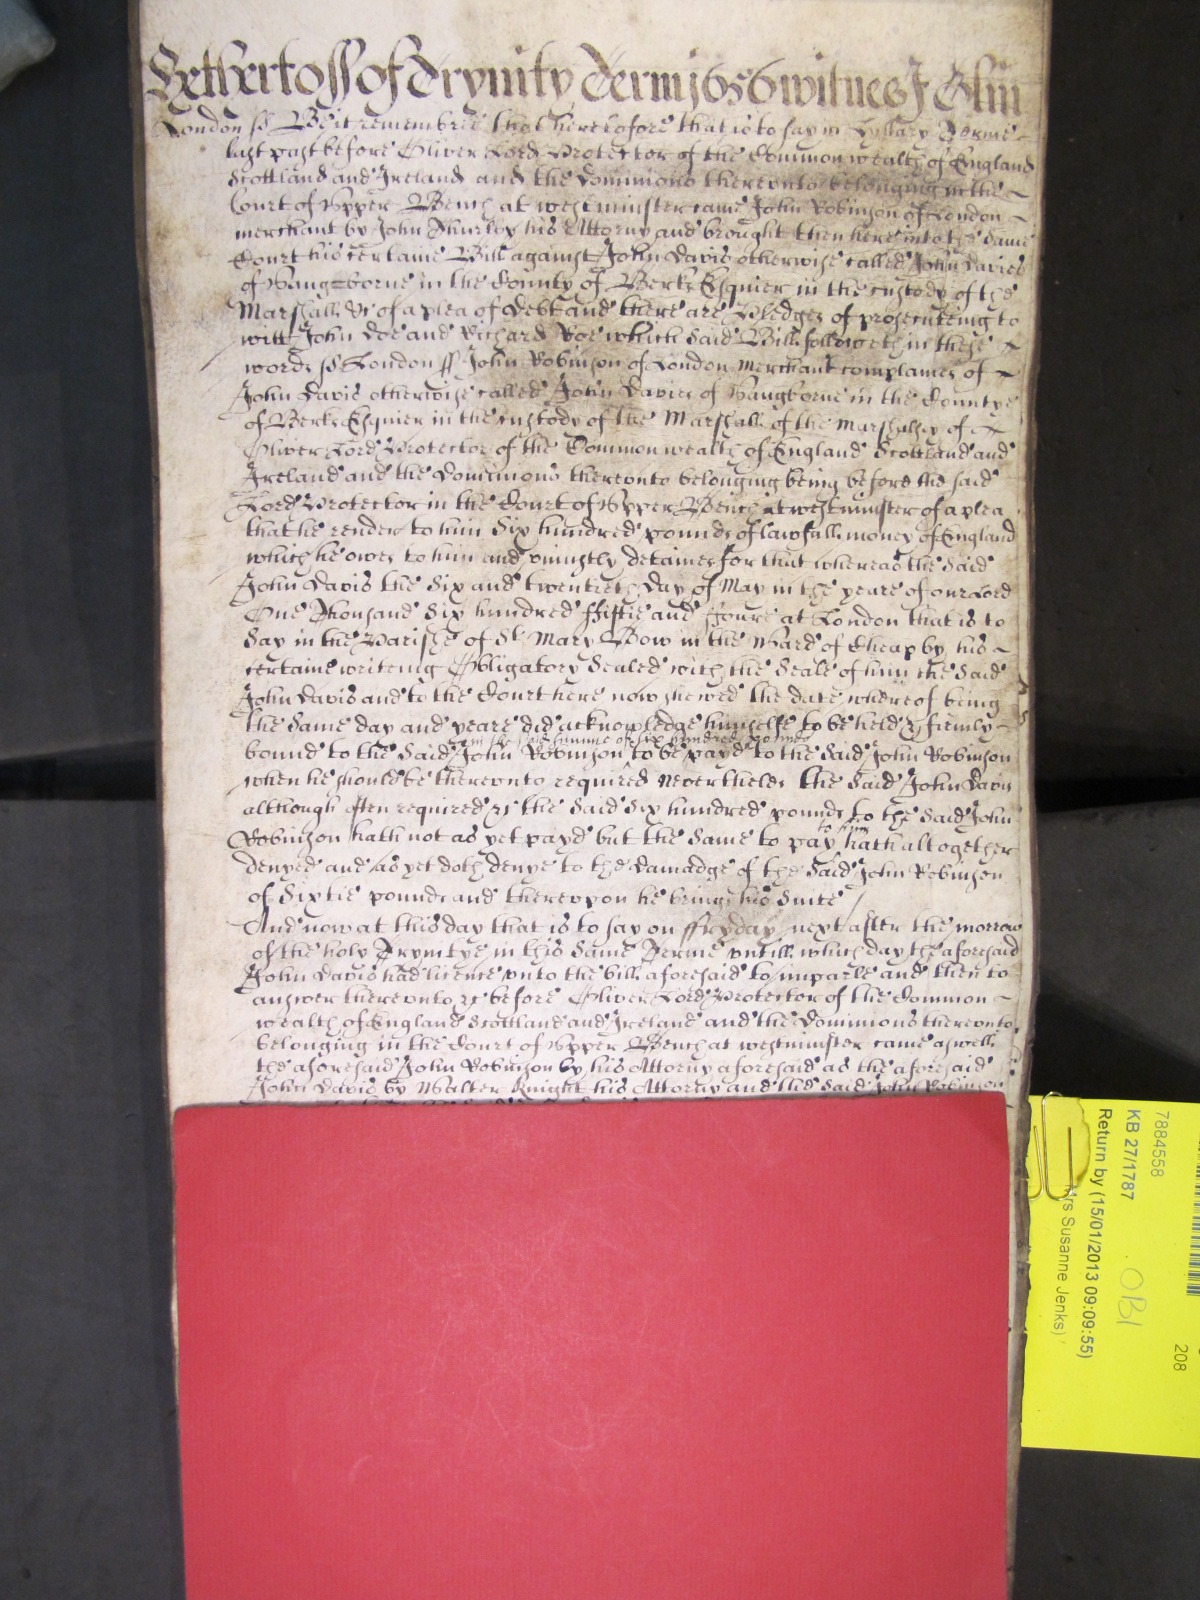 Yet hertofff of Trynity Terme 1656 witnes J Glin
London ss Be it remembred that heretofore that is to say in Hyllary Terme
last past before Oliver Lord Protector of the Common wealth of England
Scottland and Ireland and the Dominions thereunto belonging in the
Court of Upper Bench at westminster came John Robinson of London
merchant by John Thurlby his Attorny and brought then here into the same
Court his certaine Bill against John Davis otherwise called John Davies
of Bangborne in the County of Berks Esquier in the custody of the
Marshall &c of a plea of Debt and there are Pledges of prosecuteing to
witt John Doe and Richard Roe which said Bill followeth in these
words ss London ss John Robinson of London merchant complaines of
John Davis otherwise called John Davies of Bangborne in the Countye
of Berks Esquier in the custody of the Marshall of the Marshalsey of
Oliver Lord Protector of the Common wealth of England Scottland and
Ireland and the Dominions thereunto belonging being before the said
Lord Protector in the Court of Upper Bench at westminster of a plea
that he render to him Six hundred pounds of lawfull money of England
which he owes to him and uniustly detaines for that whereas the said
John Davis the Six and twentieth Day of May in the yeare of our Lord
One Thousand Six hundred ffiftie and ffoure at London that is to
say in the Parishe of St Mary Bow in the Ward of Cheap by his
certaine writeing Obligatory Sealed with the Seale of him the said
John Davis and to the Court here now shewed the date whereof being
the same day and yeare did acknowledge himselfe to be held & firmly
in the said summe of six hundred poundes
bound to the said John Robinson to be payd to the said John Robinson
when he should be thereunto required Neverthelesse the said John Davis
although often required &c the said Six hundred pounds to the said John
to him
Robinson hath not as yet payd but the same to pay hath altogether
denyed and as yet doth denye to the damadge of the said John Robinson
of Sixtie pounds and thereupon he brings his Suite
And now at this day that is to say on ffryday next after the morrow
of the holy Trynitye in this same Terme untill which day the aforesaid
John Davis had licence unto the bill aforesaid to imparle and then to
answer thereunto &c before Oliver Lord Protector of the Common
wealth of England Scottland and Ireland and the Dominions thereunto
belonging in the Court of Upper Bench at westminster came aswell
the aforesaid John Robinson by his Attorny aforesaid as the aforesaid
John Davis by Walter Knight his Attorny and the said John Robinson
7884558
KB 27/1787
Return by (15/01/2013 09:09:55)
Mrs Susanne Jenks)
OBI
208